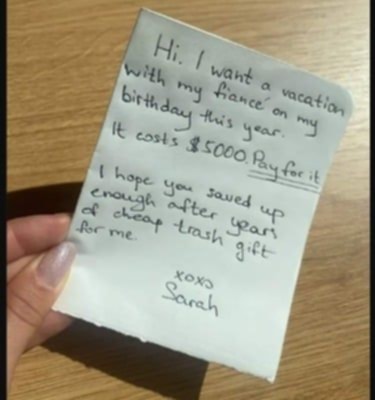 Hi. I want a vacation
with my fiancé on my
birthday this year.
It costs $5000. Pay for it
I hope you saved up
enough after years
of cheap trash gift
for me.
xoxo
Sarah